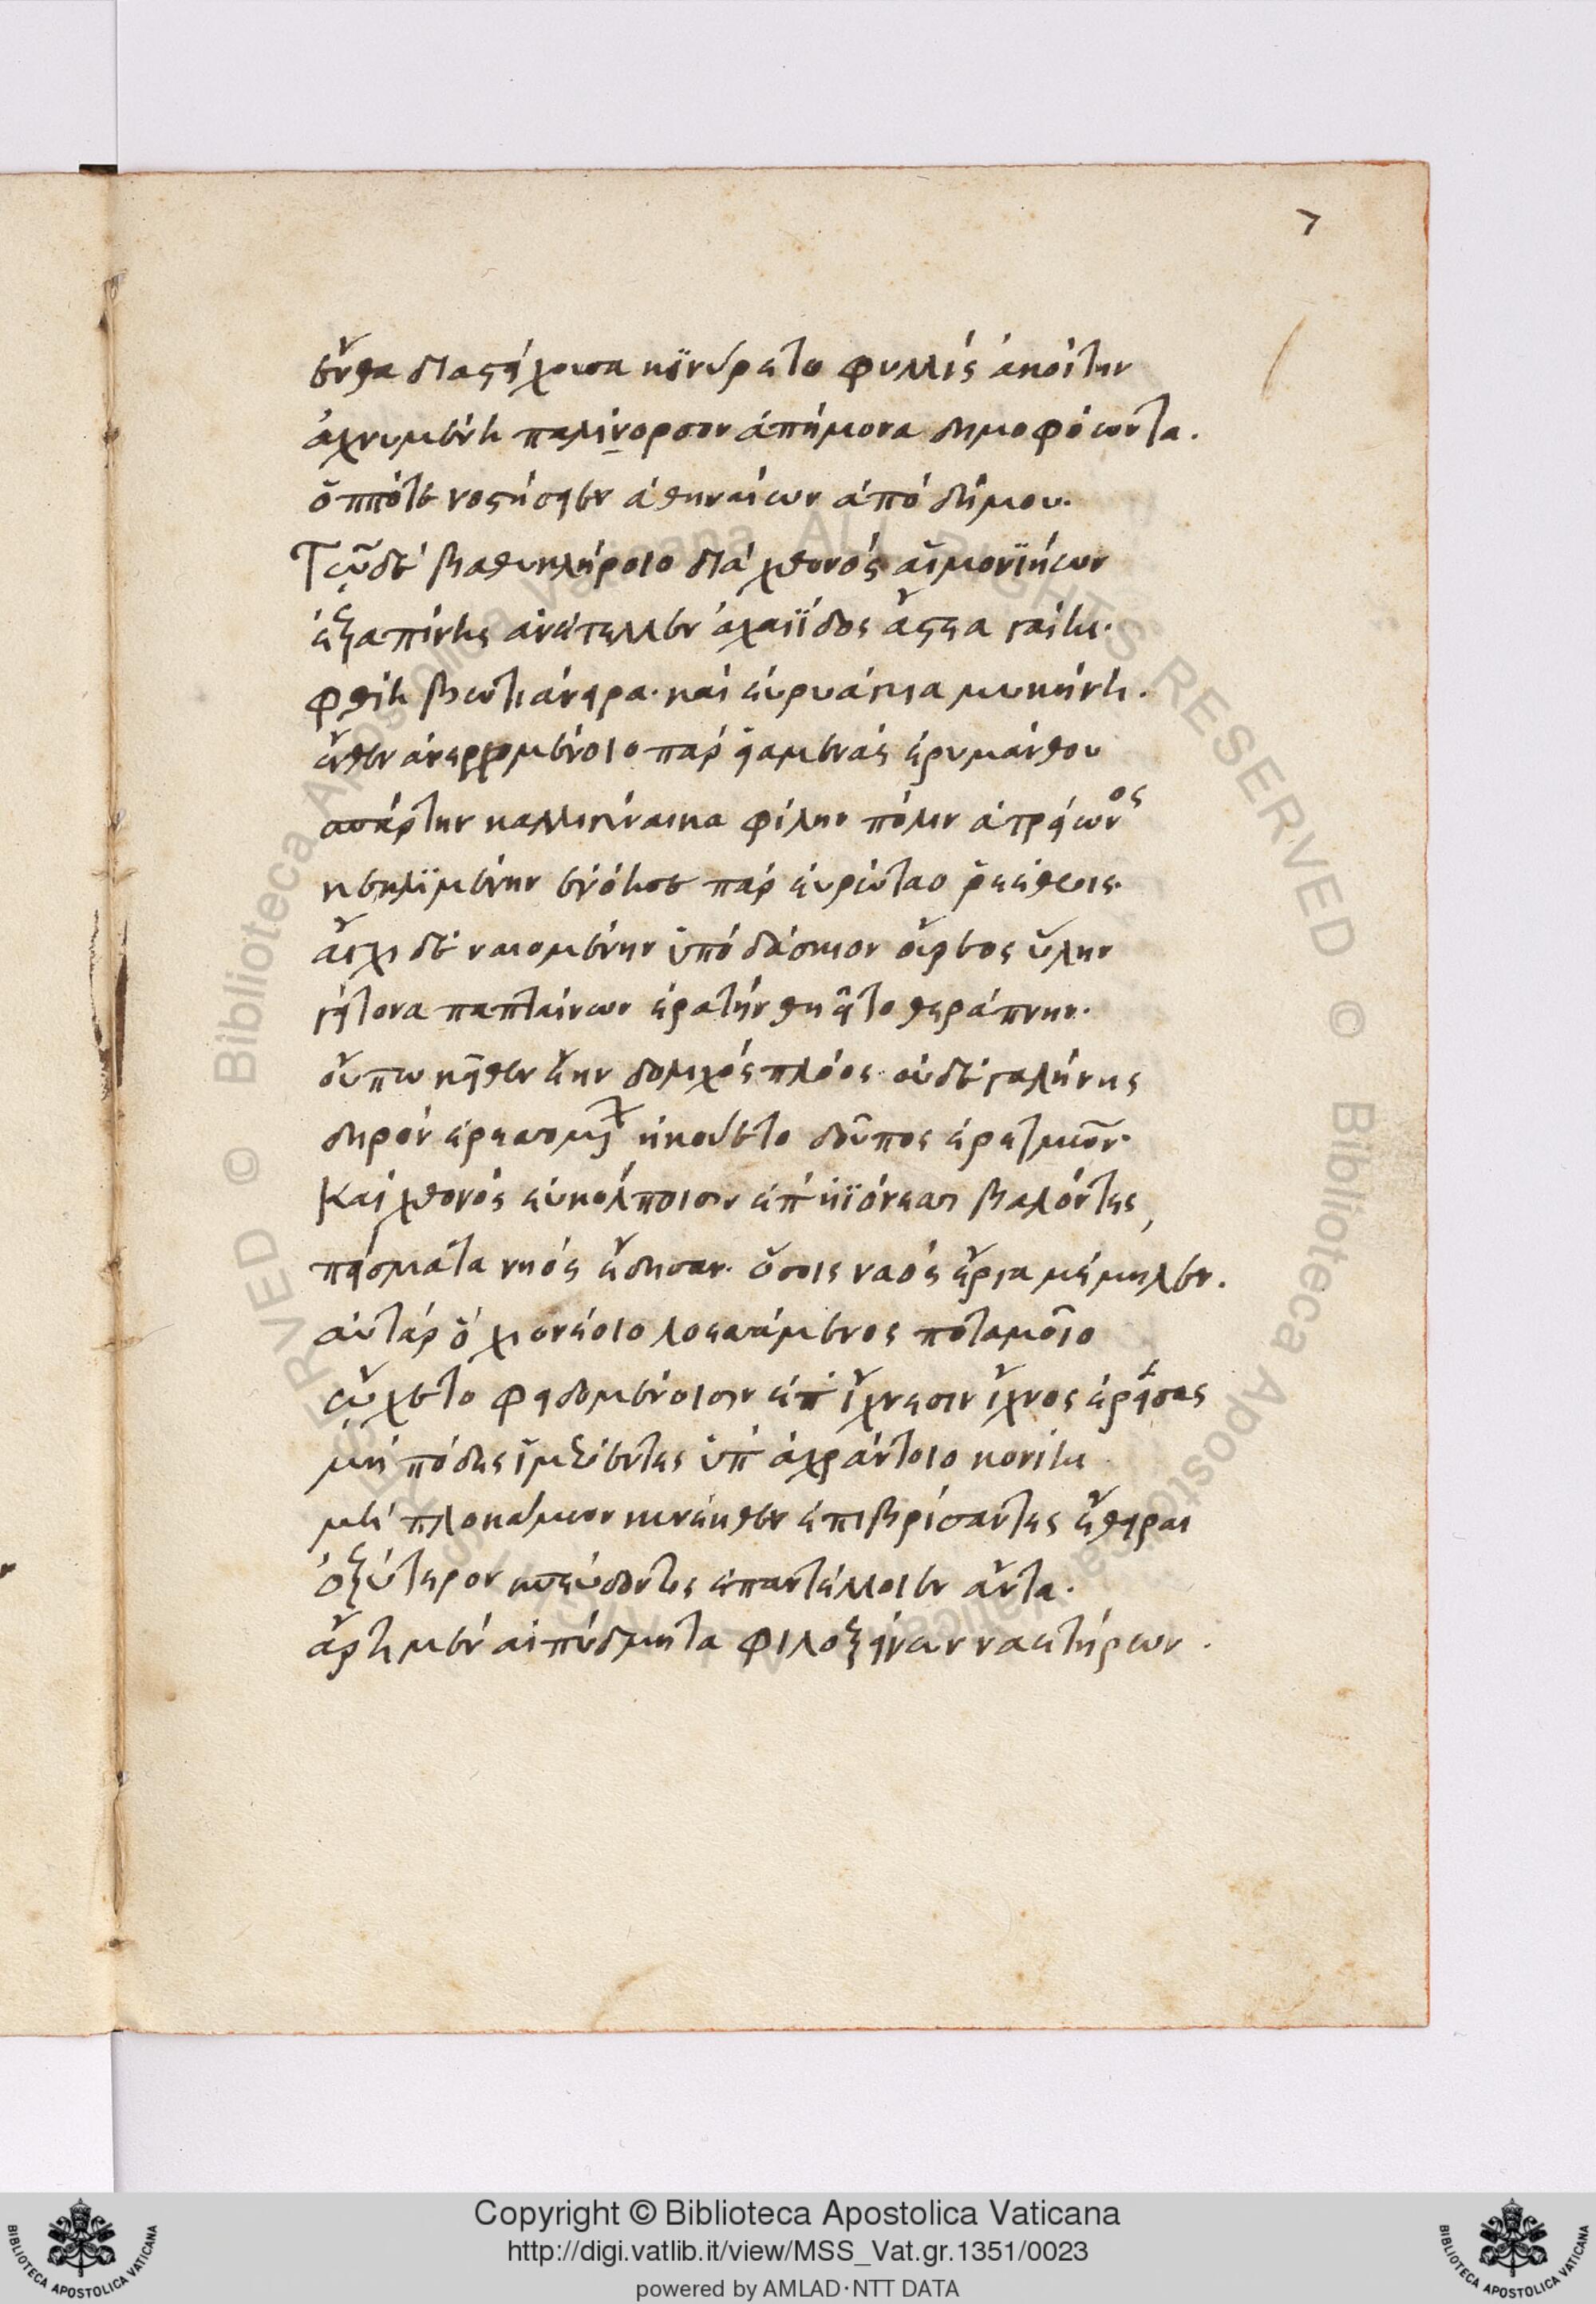 7
ἔνθα διαστείχουσα κϊνύρετο φυλλὶς ἀκοίτην
ἀχνυμένη παλίνορσον ἀπήμονα δημοφόωντα.
ὁππότε νοστήσειεν ἀθηναίων ἀπὸ δήμου.
Τῷ δὲ βαθυκλήροιο διὰ χθονὸς αἱμονϊήων
ἐξαπίνης ἀνέτελλεν ἀχαιΐδος ἄστεα γαίης.
φθίη βωτιάνειρα. καὶ εὐρυάγυια μυκήνη.
ἔνθεν ἀνερχομένοιο παρ' εἱαμενὰς ἐρυμάνθου
σπάρτην καλλιγύναικα φίλην πόλιν ἀτρείωνος
κεκλϊμένην ἐνόησε παρ' εὐρώταο ῥεέθροις.
ἄγχι δὲ ναιομένην ὑπὸ δάσκιον οὔρεος ὕλην
γείτονα παπταίνων ἐρατὴν θηεῖτο θεράπνην.
οὔπω κεῖθεν ἔην δολιχὸς πλόος οὐδὲ γαλήνης
δηρὸν ἐρεσσομένων ἠκούετο δοῦπος ἐρετμῶν.
Καὶ χθονὸς εὐκόλποισιν ἐπ' ἠϊόνεσσι βαλόντες,
πείσματα νηὸς ἔδησαν. ὅσοις ναὸς ἔργα μέμηλεν.
αὐτὰρ ὁ χιονέοιο λοεσσάμενος ποταμοῖο
ᾤχετο φειδομένοισιν ἐπ' ἴχνεσιν ἴχνος ἐρείσας
μὴ πόδες ἱμερόεντες ὑπ' ἀχράντοιο κονίης
μὴ πλοκάμων κυνέηθεν ἐπιβρίσαντες ἔθειραι
ὀξύτερον σπεύδοντος ἐπαντέλλοιεν ἄντα.
ἄρτι μὲν αἰπύδμητα φιλοξείνων ναετήρων.
Copyright © Biblioteca Apostolica Vaticana
http://digi.vatlib.it/view/MSS_Vat.gr.1351/0023
powered by AMLAD·NTT DATA